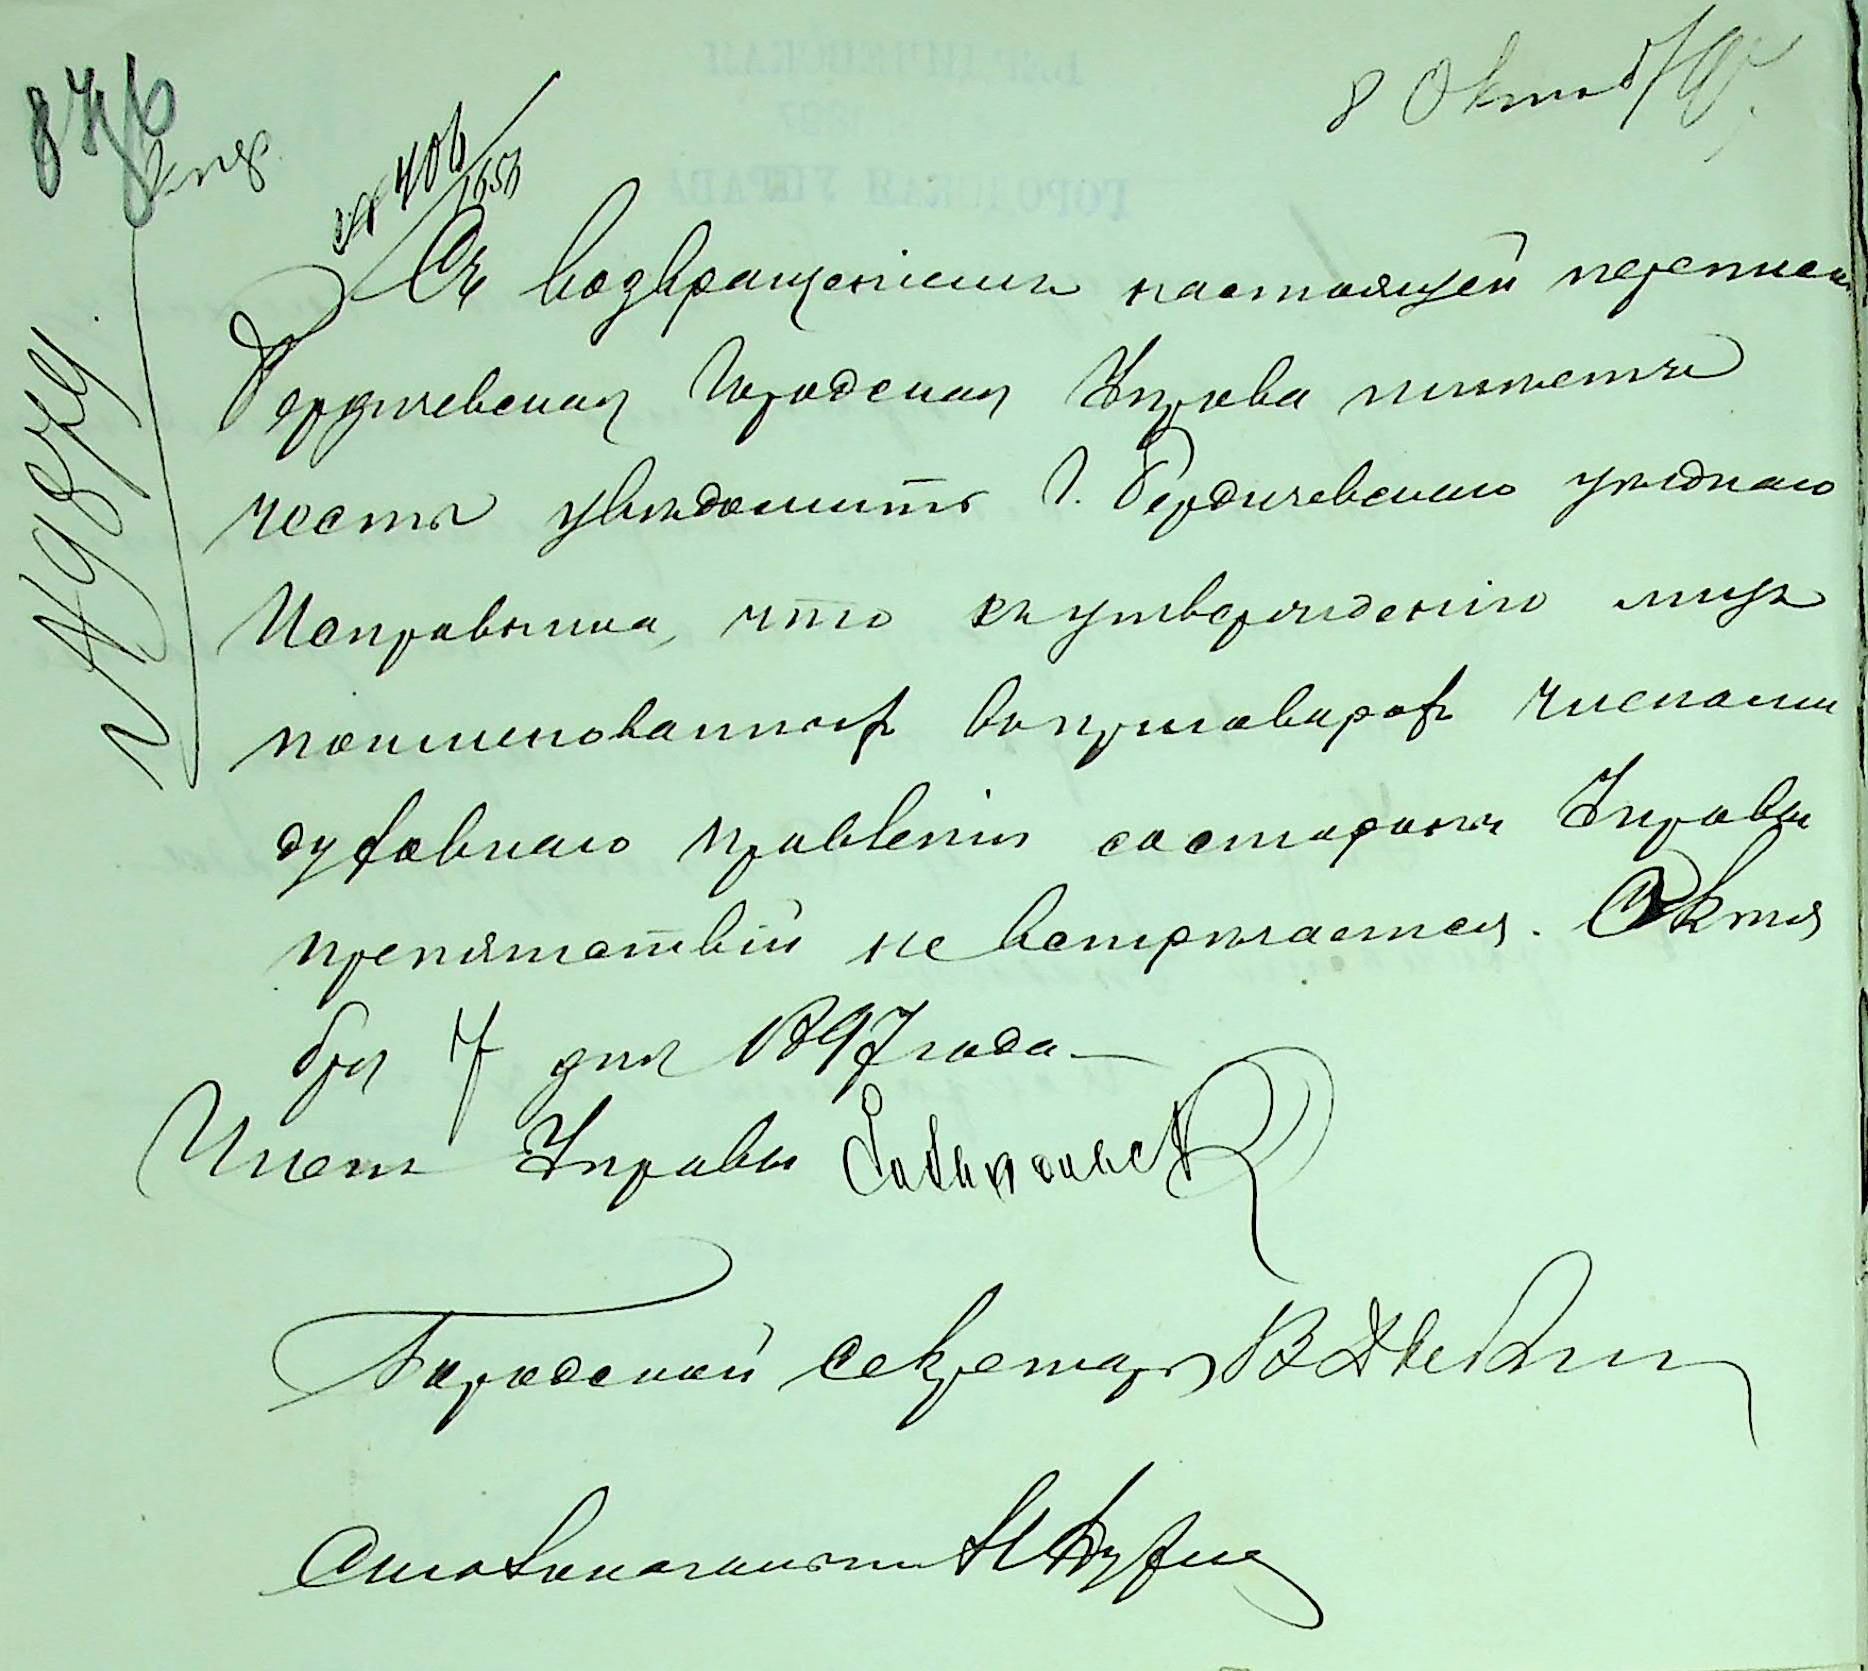 8 Октяб
Съ возвращеніемъ настоящей переписки
Бердичевская Городская Управа имѣетъ
честь увѣдомить Г. Бердичевскаго уѣзднаго
Исправника, что къ утвержденію лицъ
поименованныхъ въ приговорахъ членами
духовнаго правленія состороны Управы
препятствій не встрѣчается. Октя
бря 7 дня 1897 года
Членъ Управы
Городской секретарь В
Столоначальникъ